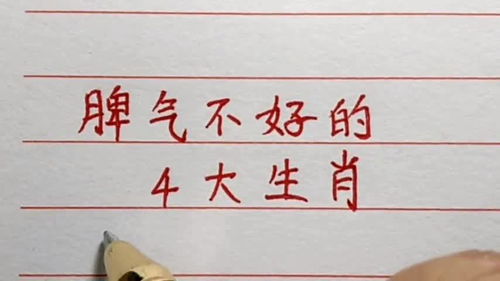 脾气不好的
4大生肖